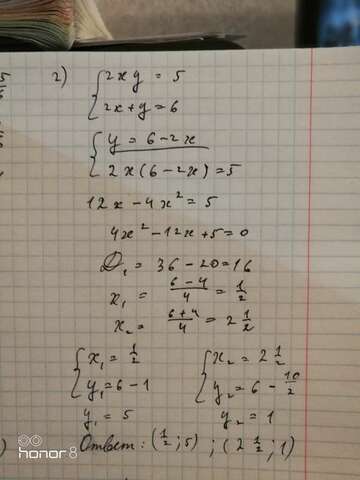 2) { 2xy = 5
{ 2x+y=6
{ y = 6-2x
{ 2x(6-2x)=5
12x-4x²=5
4x²-12x+5=0
D₁ = 36-20=16
x₁ = (6-4)/4 = 1/2
x₂ = (6+4)/4 = 2 1/2
{ x₁ = 1/2 { x₂ = 2 1/2
{ y₁=6-1 { y₂=6- 10/2
y₁ = 5 y₂ = 1
Ответ: (1/2; 5) ; (2 1/2; 1)
honor 8